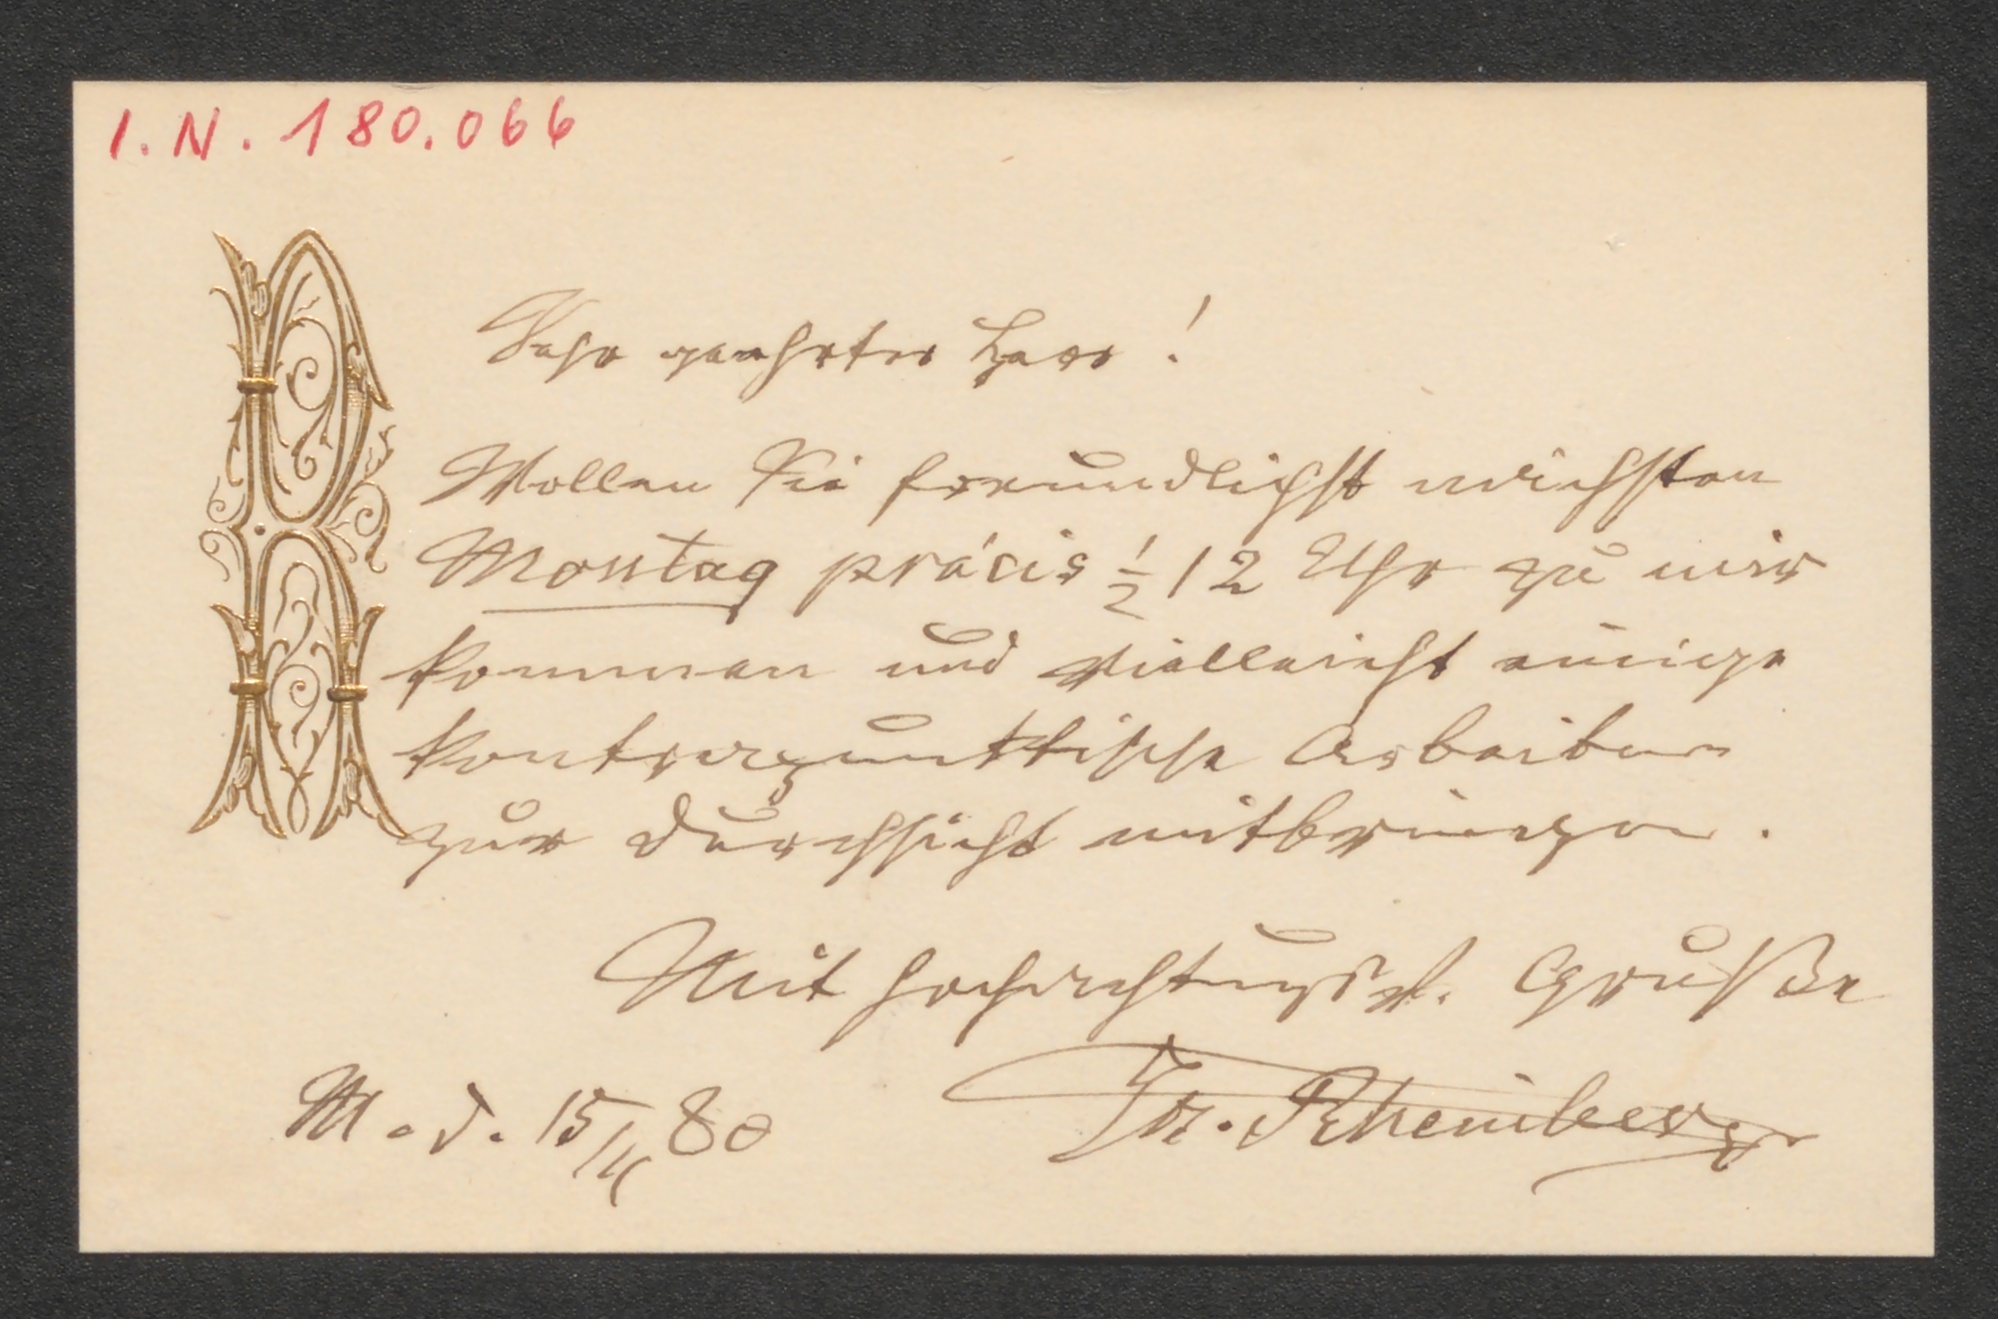 I.N. 180.066
R
Sehr geehrter Herr!
Wollen Sie freundlichst nächsten
Montag präcis ½12 Uhr zu mir
kommen und vielleicht einige
kontrapunktische Arbeiten
zur Durchsicht mitbringen.
Mit hochachtungsv. Gruße
M. d. 15/11 80
Jos. Rheinberger